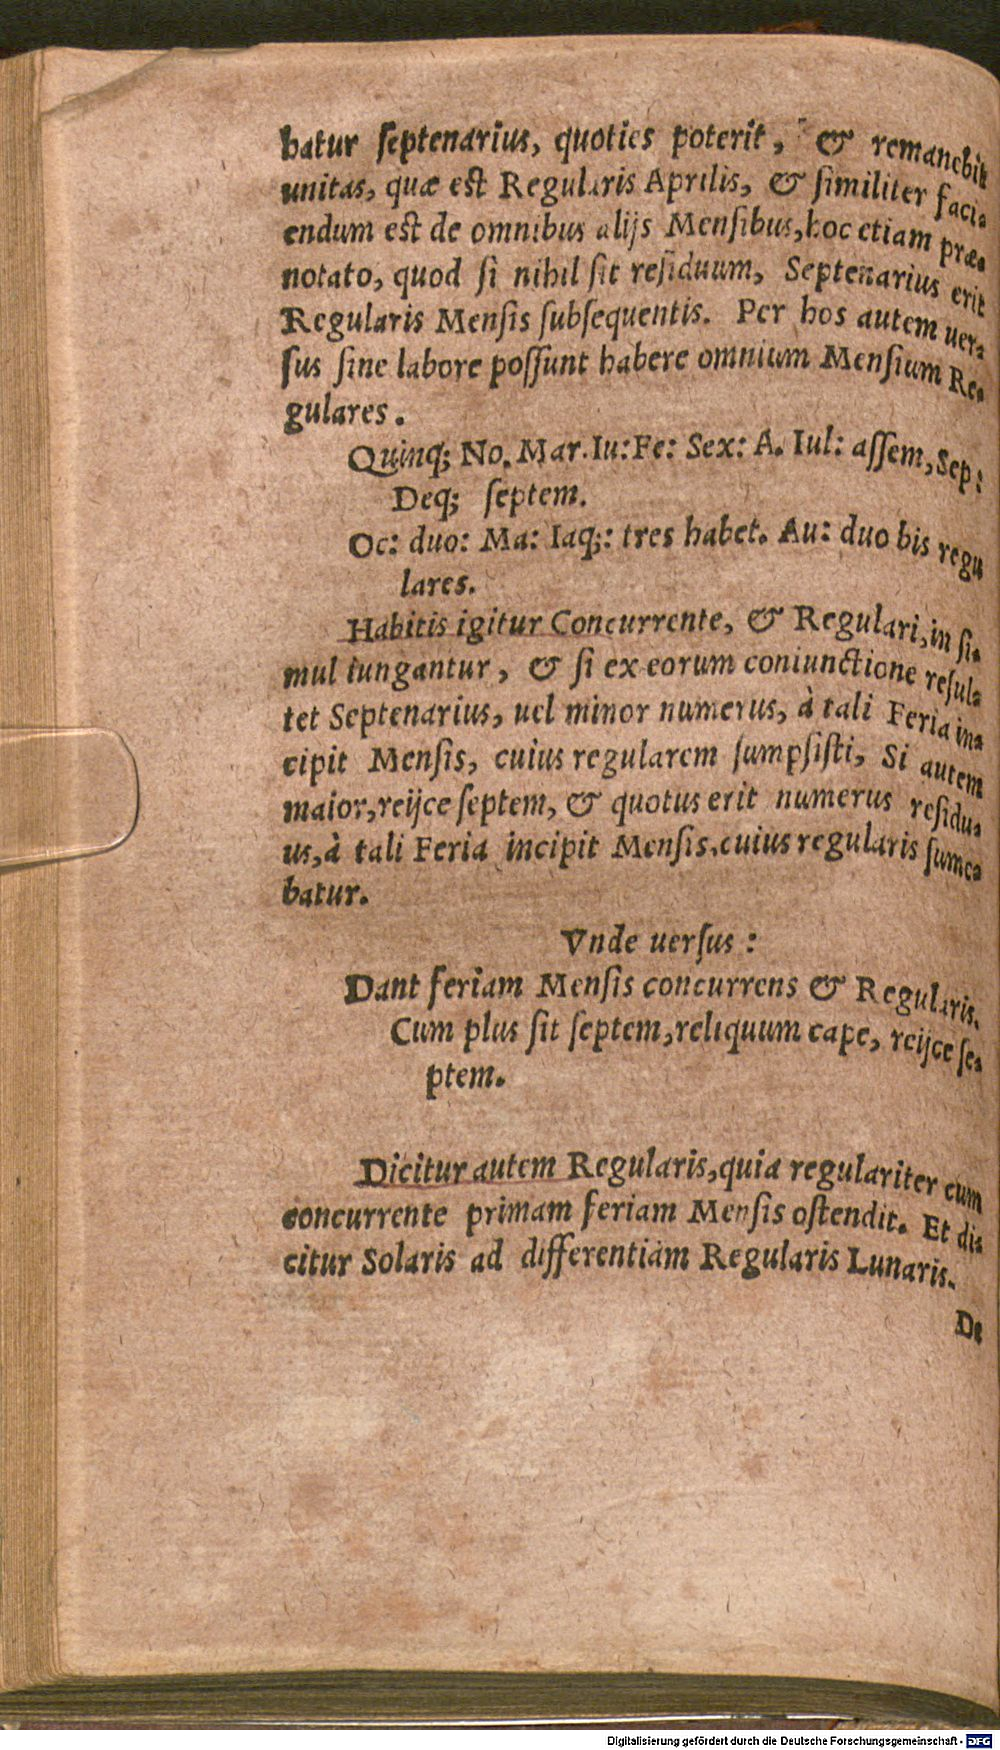 batur septenarius, quoties poterit, & remanebit
unitas, quæ est Regularis Aprilis, & similiter faci-
endum est de omnibus alijs Mensibus, hoc etiam præ-
notato, quod si nihil sit residuum, Septenarius erit
Regularis Mensis subsequentis. Per hos autem uer-
sus sine labore possunt habere omnium Mensium Re-
gulares.
Quinq; No. Mar. Iu: Fe: Sex: A. Iul: assem, Sep:
Deq; septem.
Oc: duo: Ma: Iaq;: tres habet. Au: duo bis regu
lares.
Habitis igitur Concurrente, & Regulari, in si-
mul iungantur, & si ex eorum coniunctione resul-
tet Septenarius, uel minor numerus, à tali Feria in-
cipit Mensis, cuius regularem sumpsisti, Si autem
maior, reijce septem, & quotus erit numerus residu-
us, à tali Feria incipit Mensis, cuius regularis sume-
batur.
Vnde uersus:
Dant feriam Mensis concurrens & Regularis.
Cum plus sit septem, reliquum cape, reijce se-
ptem.
Dicitur autem Regularis, quia regulariter cum
concurrente primam feriam Mensis ostendit. Et di-
citur Solaris ad differentiam Regularis Lunaris.
De
Digitalisierung gefördert durch die Deutsche Forschungsgemeinschaft - DFG